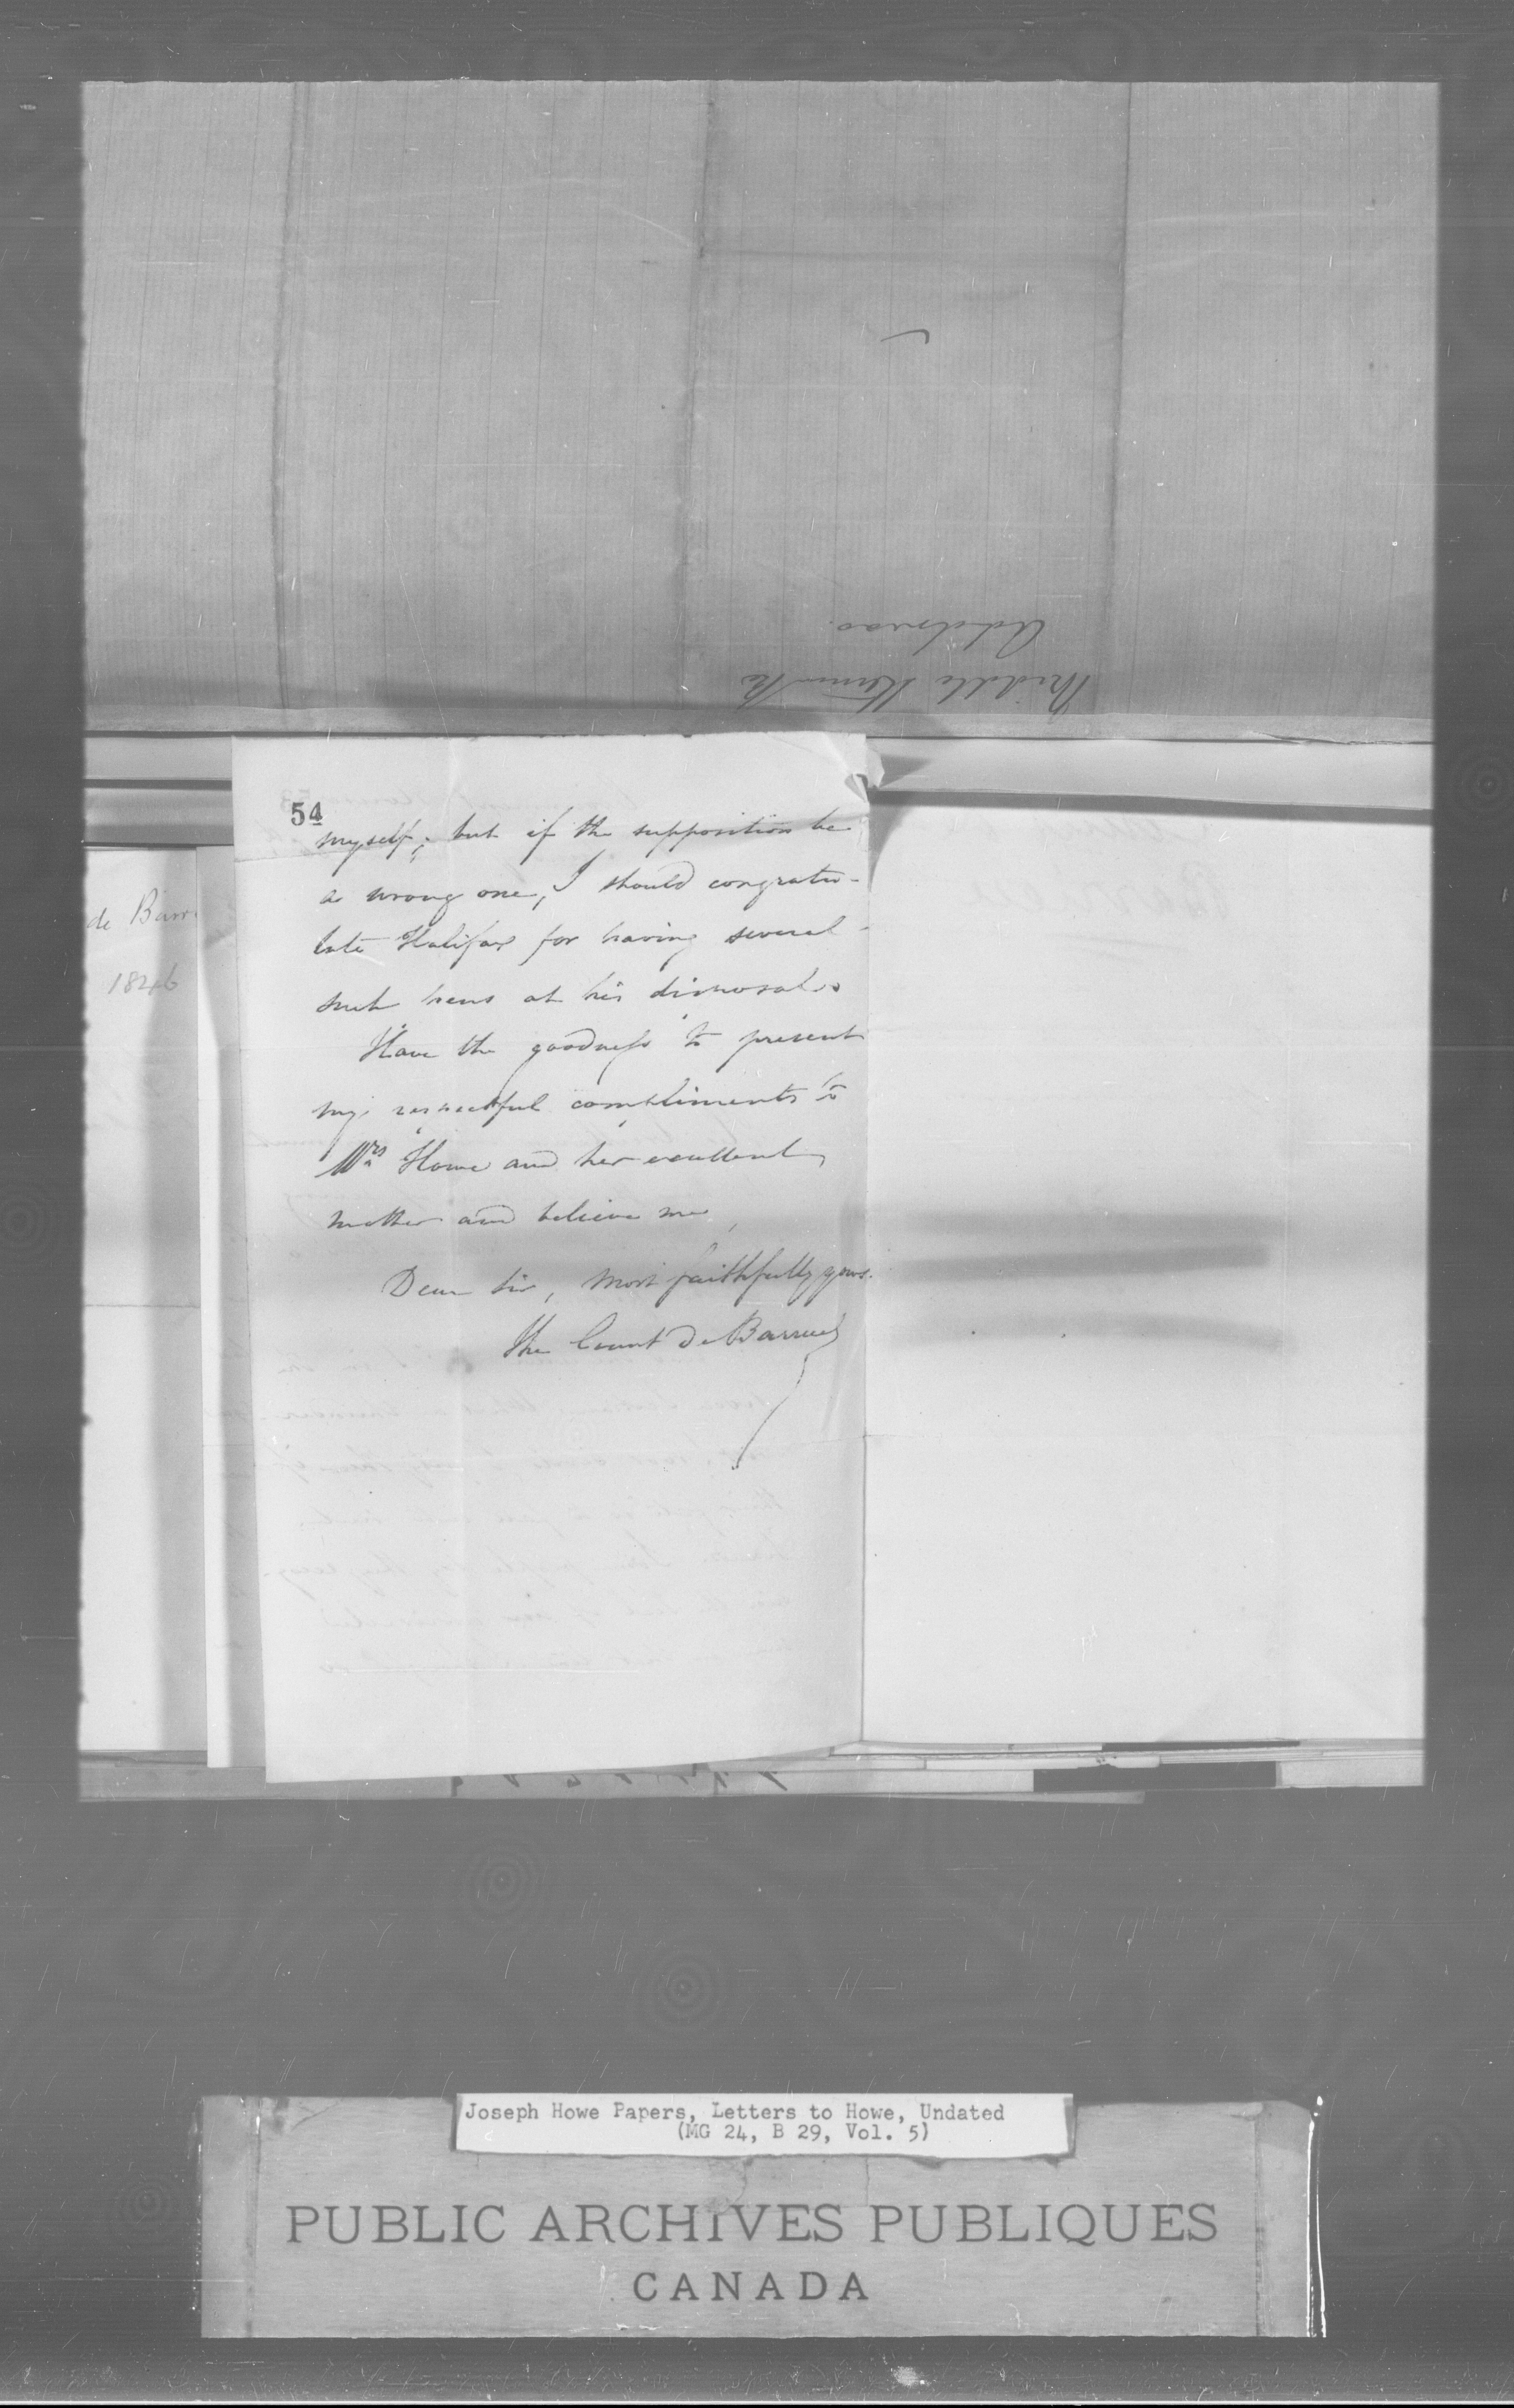 Address
Middle
54
myself; but if the supposition be
a wrong one, I should congratu-
late Halifax for having several
such at his disposal.
Have the goodness to present
my respectful compliments to
Mrs Howe and her excellent
mother and believe me,
Dear Sir, Most faithfully yours.
The Count De Barruel
de Barr
1846
Joseph Howe Papers, Letters to Howe, Undated
(MG 24, B 29, Vol. 5)
PUBLIC ARCHIVES PUBLIQUES
CANADA